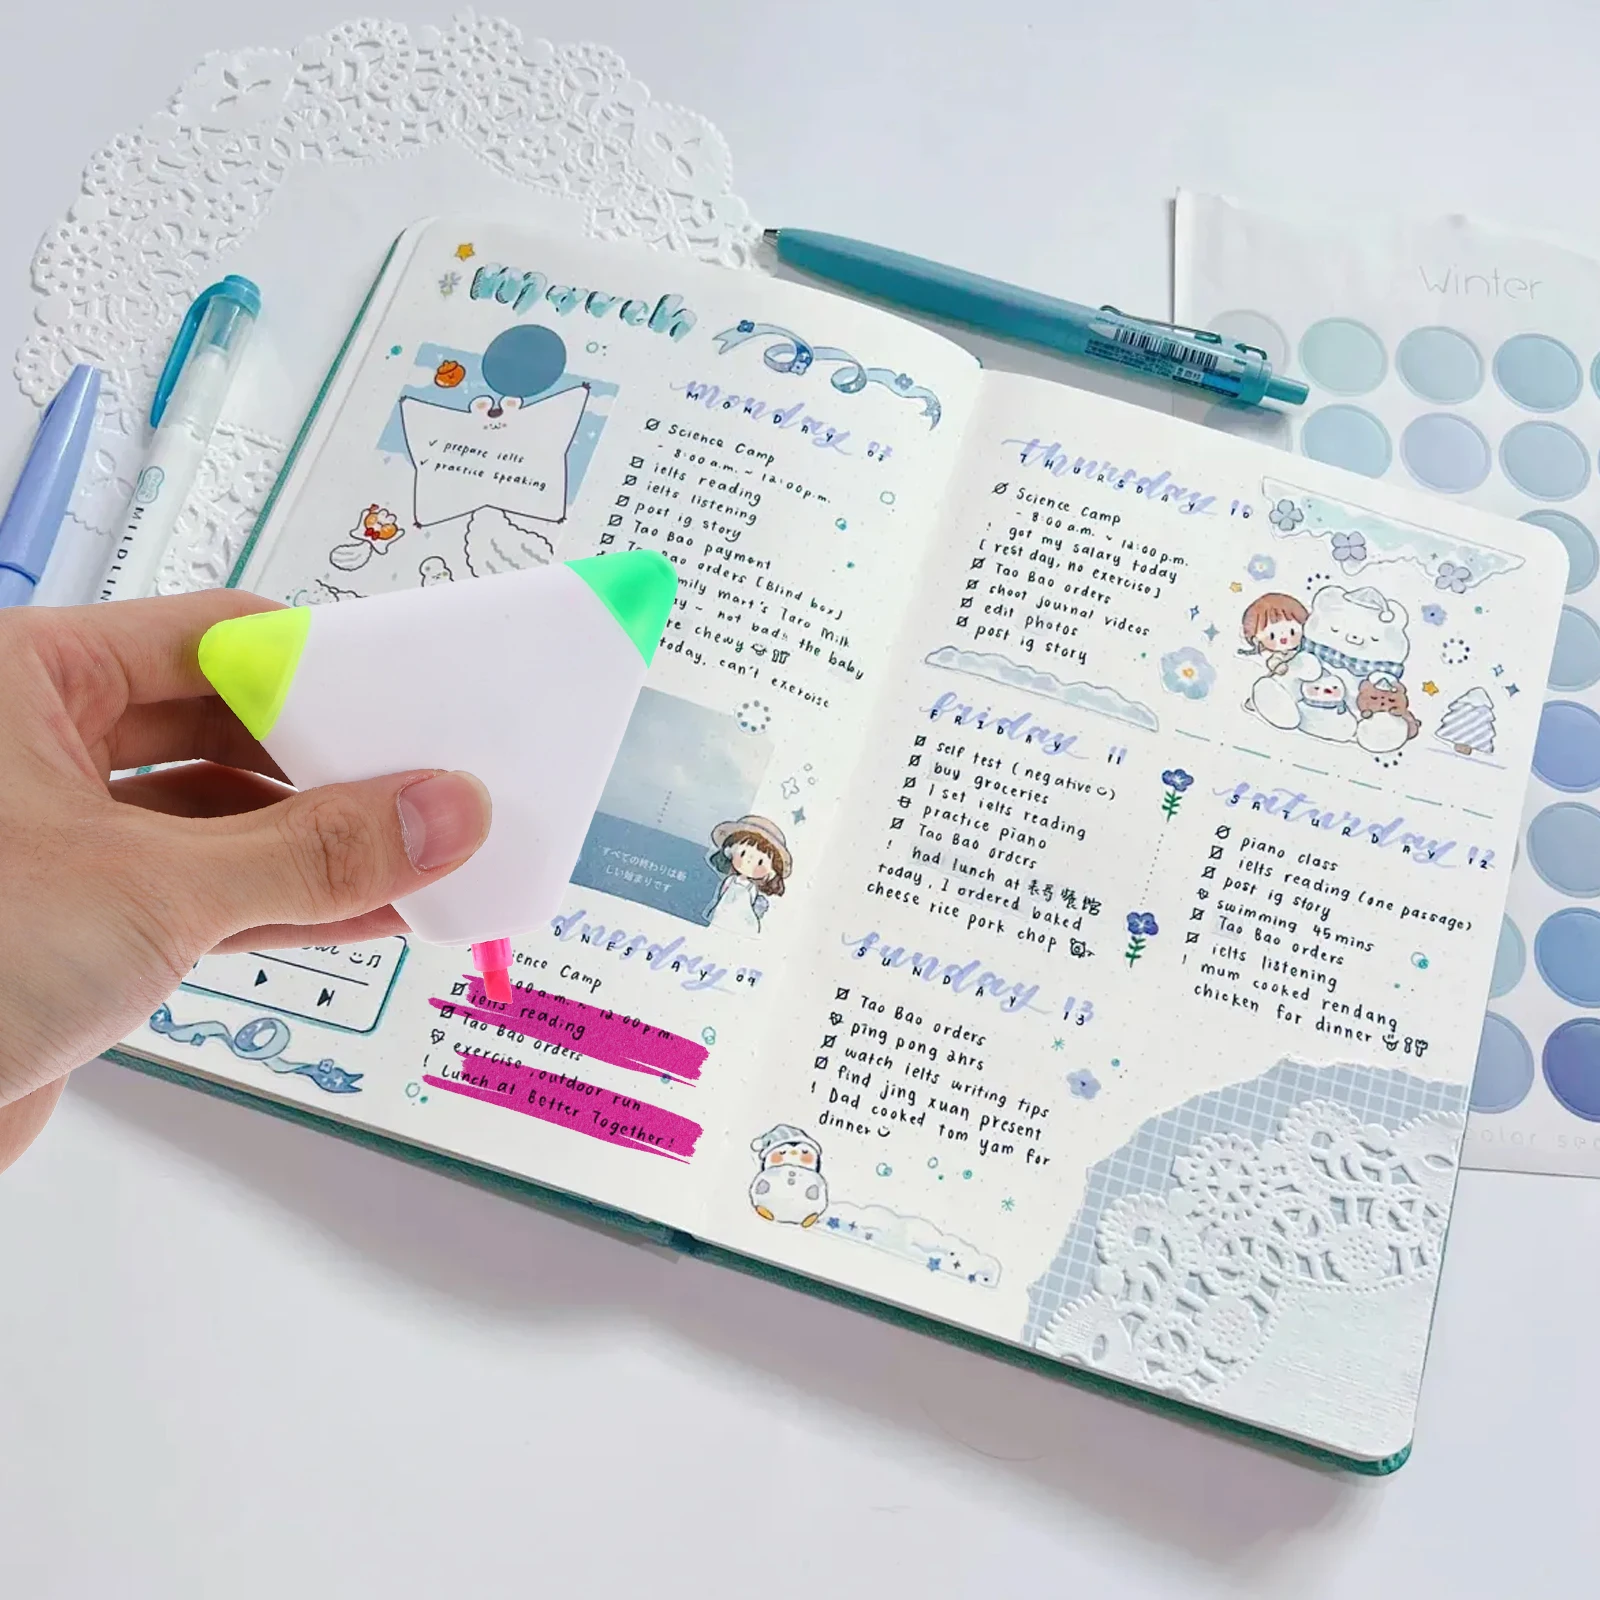 March
✓ prepare ielts
✓ practice speaking
monday 07
MONDAY 07
Science Camp
- 8:00 a.m. ~ 12:00 p.m.
ielts reading
ielts listening
post ig story
Tao Bao payment
Bao orders [Blind box]
mart's Taro Milk
- not bad!! the baby
chewy
today, can't exercise
すべての終わりは新
しい始まりです
09
DNESDAY 09
Camp
12:00 p.m.
ielts reading
Tao Bao orders
exercise, outdoor run
! Lunch at Better Together!
thursday 10
THURSDAY 10
Science Camp
- 8:00 a.m. ~ 12:00 p.m.
! got my salary today
[rest day, no exercise]
Tao Bao orders
shoot journal videos
edit photos
post ig story
friday 11
FRIDAY 11
self test (negative)
buy groceries
1 set ielts reading
practice piano
Tao Bao orders
! had lunch at
today, I ordered baked
cheese rice pork chop
saturday 12
SATURDAY 12
piano class
ielts reading (one passage)
post ig story
swimming 45mins
Tao Bao orders
ielts listening
! mum cooked rendang
chicken for dinner
sunday 13
SUNDAY 13
Tao Bao orders
ping pong 2hrs
watch ielts writing tips
find jing xuan present
! Dad cooked tom yam for
dinner
Winter
MILDLIN